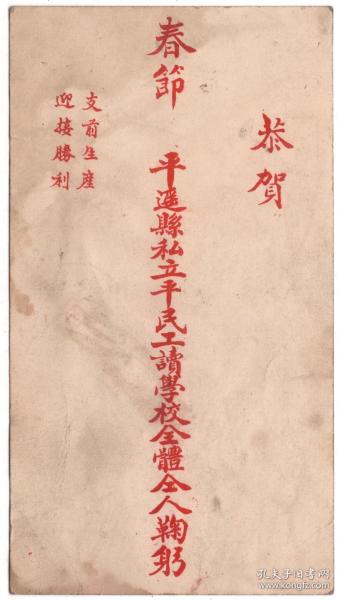 恭賀
春節
平遥縣私立平民工讀學校全體仝人鞠躬
支前生産
迎接勝利
孔夫子旧书网